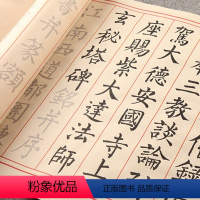 三教談論
駕大德安國寺上
座賜紫大達法師
玄秘塔碑
銘并序
江南西道
篆額
粉象优品